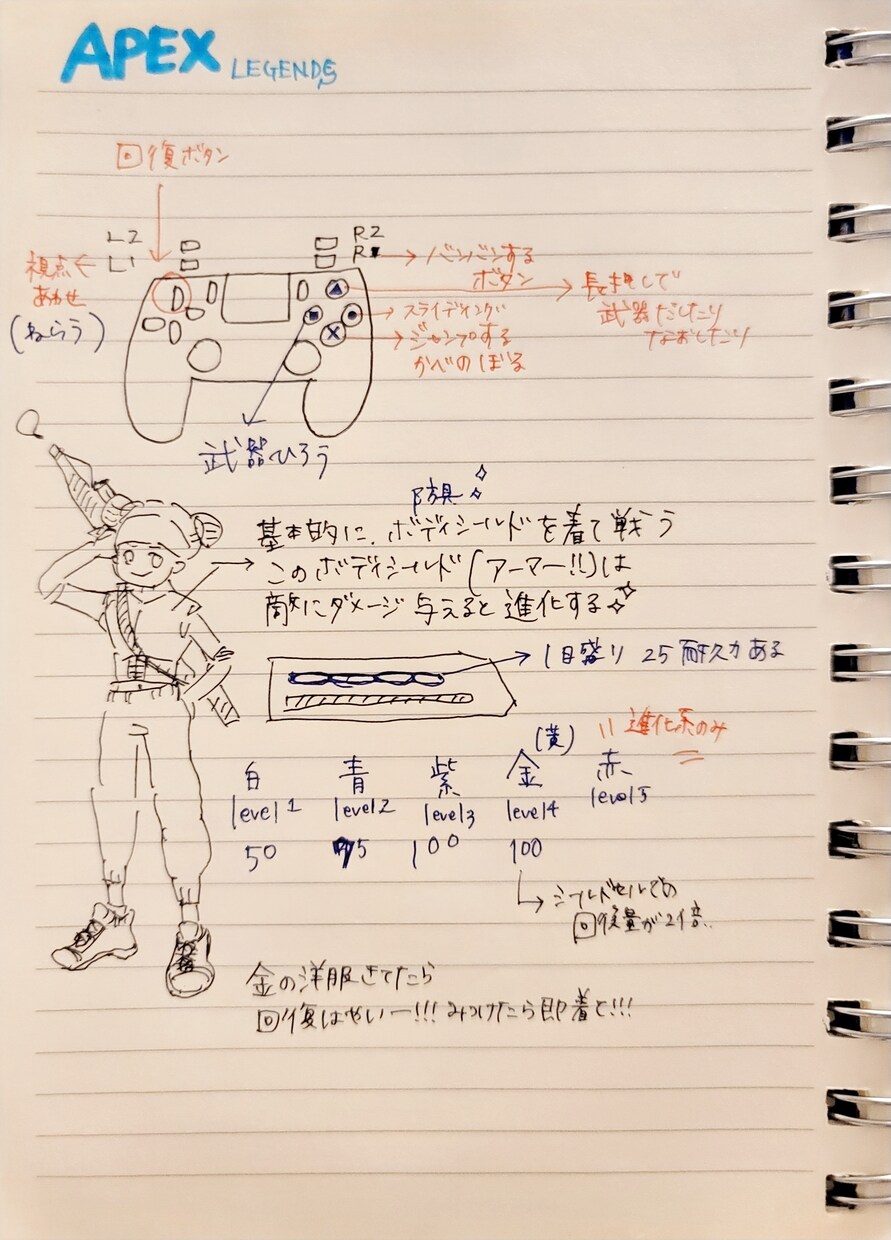 APEX LEGENDS
回復ボタン
L2
L1
R2
R1
視点
あわせ
(ねらう)
バンバンする
ボタン
長押しで
武器だしたり
なおしたり
スライディング
ジャンプする
かべのぼる
武器ひろう
防具
基本的に、ボディシールドを着て戦う
このボディシールド(アーマー!!)は
敵にダメージ与えると進化する
1目盛り 25耐久力ある
(黄) 〃進化系のみ
白 青 紫 金 赤
level1 level2 level3 level4 level5
50 75 100 100
シールドセルでの
回復量が2倍..
金の洋服きてたら
回復はやいー!!!みつけたら即着て!!!